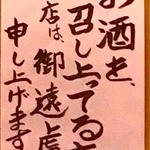 お酒を、
召し上ってる方
店は、御遠慮
申し上げます